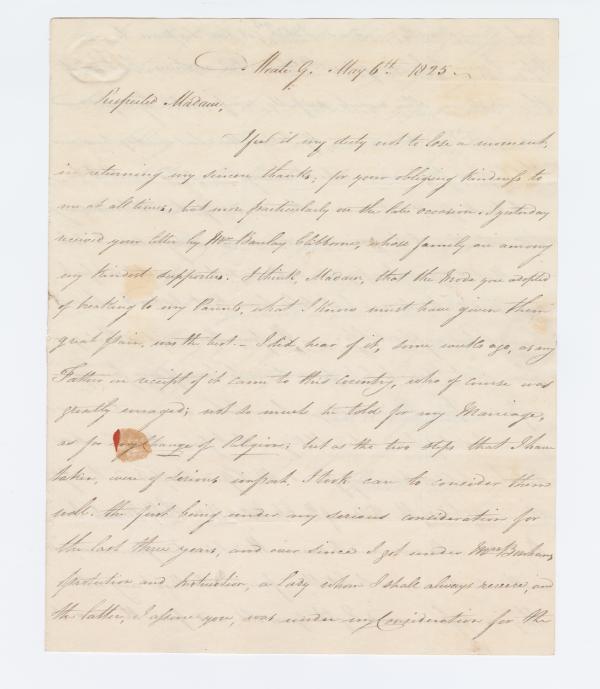 Moate G. May 6th. 1825.
Respected Madam,
I feel it my duty not to lose a moment,
in returning my sincere thanks; for your obliging kindness to
me at all times, but more particularly on the late occasion. I yesterday
received your letter by Mrs Barclay Clibborne, whose family are among
my kindest supporters. I think, Madam, that the Mode you adopted
of breaking to my Parents, what I know must have given them
great Pain, was the best.- I did hear of it, some weeks ago, as my
Father, on receipt of it came to this Country, who of course was
greatly enraged; not so much he told for my Marriage,
as for my Change of Religion; but as the two steps that I have
taken, were of serious import, I took care to consider them
well. the first being under my serious consideration for
the last three years, and ever since I got under Mrs
protection and instruction, a Lady whom I shall always revere, and
the latter, I assure you, was under my Consideration for the